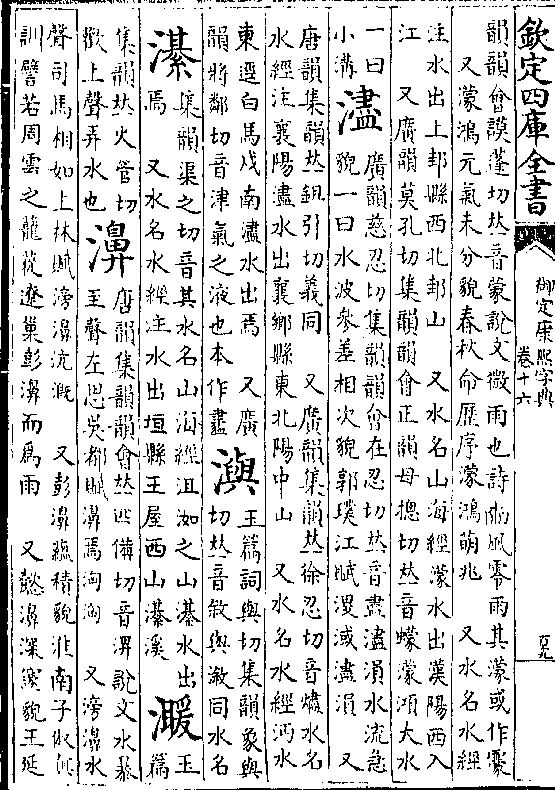 欽定四庫全書
御定康熙字典
卷十六
韻韻會謨蓬切𠀤音蒙說文微雨也詩豳風零雨其濛或作霥
又濛鴻元氣未分貌春秋命歷序濛鴻萌兆 又水名水經
注水出上邽縣西北邽山 又水名山海經濛水出漢陽西入
江 又廣韻莫孔切集韻韻會正韻母總切𠀤音蠓濛澒大水
一曰小溝
濜
廣韻慈忍切集韻韻會在忍切𠀤音盡濜溳水流急
貌一曰水波參差相次貌郭璞江賦溭淢濜溳 又
唐韻集韻𠀤鉏引切義同 又廣韻集韻𠀤徐忍切音燼水名
水經注襄陽濜水出襄鄉縣東北陽中山 又水名水經沔水
東逕白馬戍南濜水出焉 又廣
韻將鄰切音津氣之液也本作𧗁
㵰
玉篇詞與切集韻象與
切𠀤音敘與漵同水名
濝
集韻渠之切音其水名山海經沮洳之山濝水出
焉 又水名水經注水出垣縣王屋西山濝溪
㬉
玉篇
集韻𠀤火管切
歡上聲弄水也
濞
唐韻集韻韻會𠀤匹備切音淠說文水暴
至聲左思吳都賦濞焉洶洶 又滂濞水
聲司馬相如上林賦滂濞沆溉 又彭濞蘊積貌淮南子俶眞
訓譬若周雲之蘢蓯遼巢彭濞而爲雨 又懿濞深邃貌王延